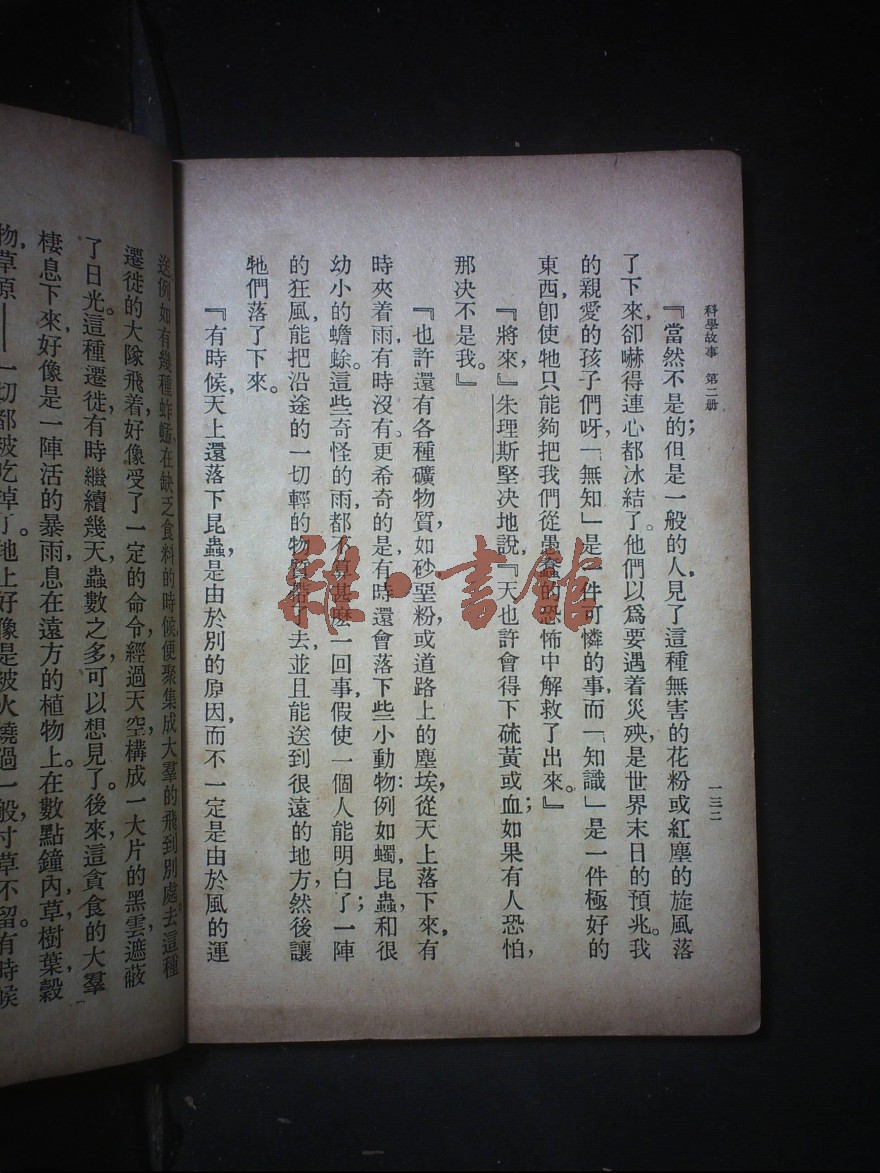 科學故事　第二册
一三二
『當然不是的；但是一般的人，見了這種無害的花粉或紅塵的旋風落
了下來，卻嚇得連心都冰結了。他們以爲要遇着災殃，是世界末日的預兆。我
的親愛的孩子們呀，「無知」是一件可憐的事，而「知識」是一件極好的
東西，卽使牠只能夠把我們從愚蠢的恐怖中解救了出來。』
『將來，』朱理斯堅决地說，『天也許會得下硫黃或血；如果有人恐怕，
那决不是我。』
『也許還有各種礦物質，如砂，堊粉或道路上的塵埃，從天上落下來，有
時夾着雨，有時沒有。更希奇的是，有時還會落下些小動物：例如蠋，昆蟲，和很
幼小的蟾蜍。這些奇怪的雨，都不算甚麼一回事，假使一個人能明白了一陣
的狂風，能把沿途的一切輕的物質帶了去，並且能送到很遠的地方，然後讓
牠們落了下來。
『有時候，天上還落下昆蟲，是由於別的原因，而不一定是由於風的運
送。例如有幾種蚱蜢，在缺乏食料的時候，便聚集成大羣的飛到別處去。這種
遷徙的大隊飛着，好像受了一定的命令，經過天空，構成一大片的黑雲，遮蔽
了日光。這種遷徙有時繼續幾天，蟲數之多，可以想見了。後來，這貪食的大羣
棲息下來，好像是一陣活的暴雨，息在遠方的植物上。在數點鐘內，草，樹葉，穀
物，草原——一切都被吃掉了。地上好像是被火燒過一般，寸草不留。有時候
雜·書館